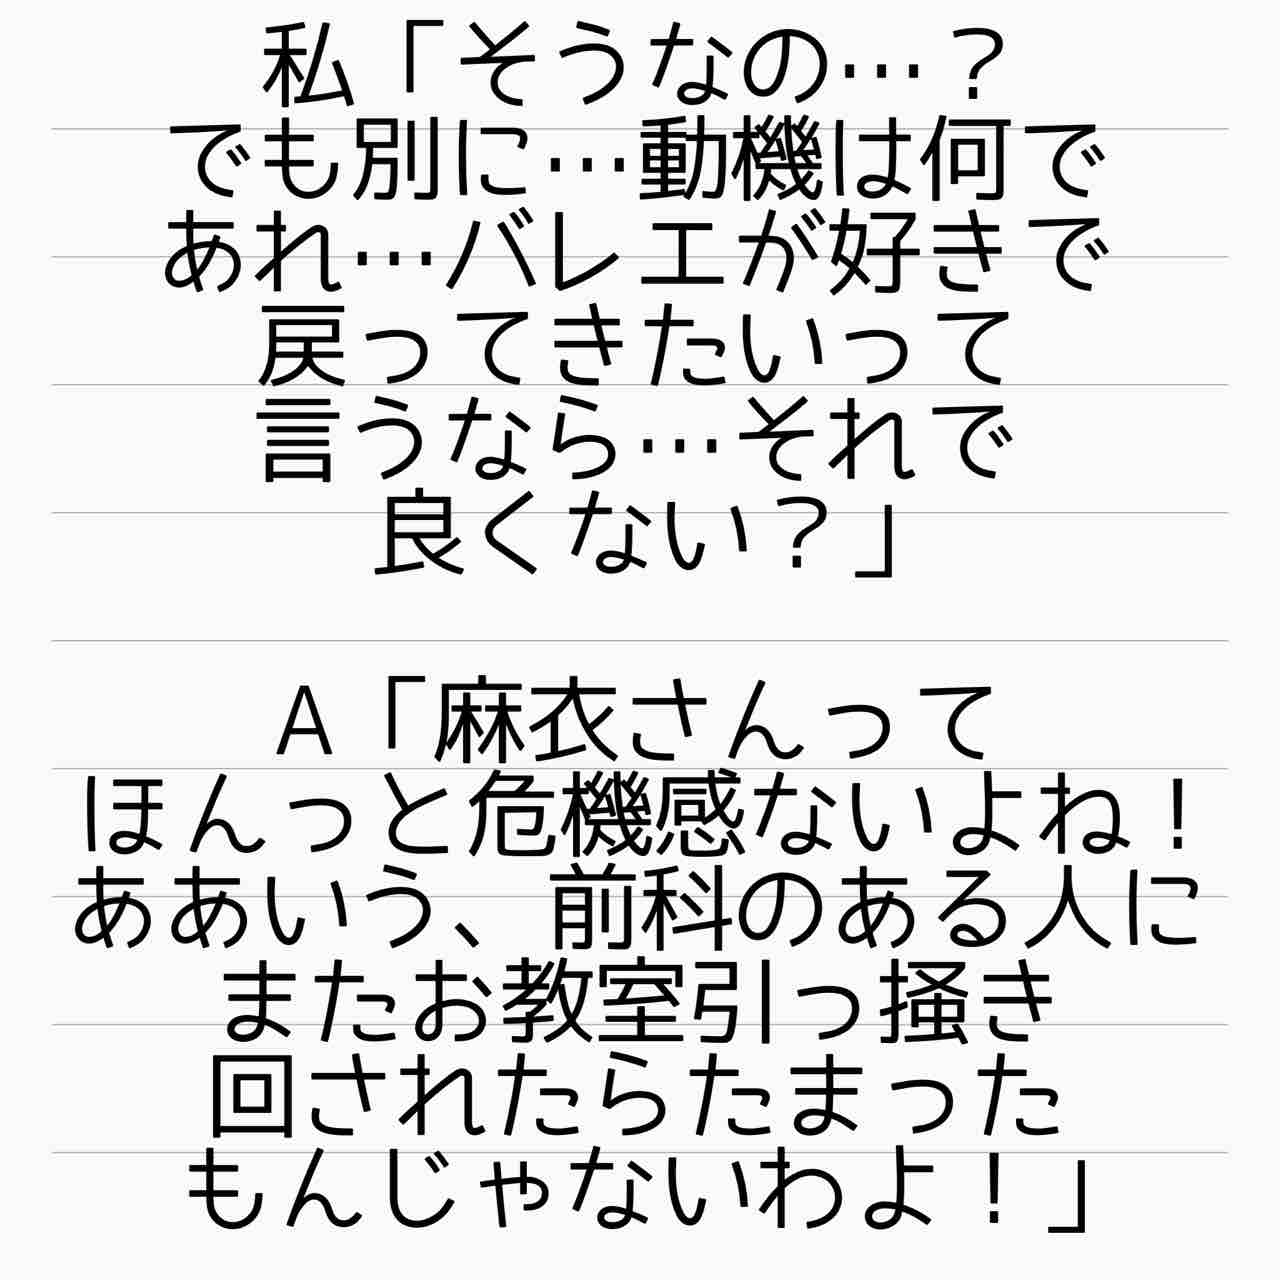 私「そうなの…？
でも別に…動機は何で
あれ…バレエが好きで
戻ってきたいって
言うなら…それで
良くない？」
A「麻衣さんって
ほんっと危機感ないよね！
ああいう、前科のある人に
またお教室引っ掻き
回されたらたまった
もんじゃないわよ！」